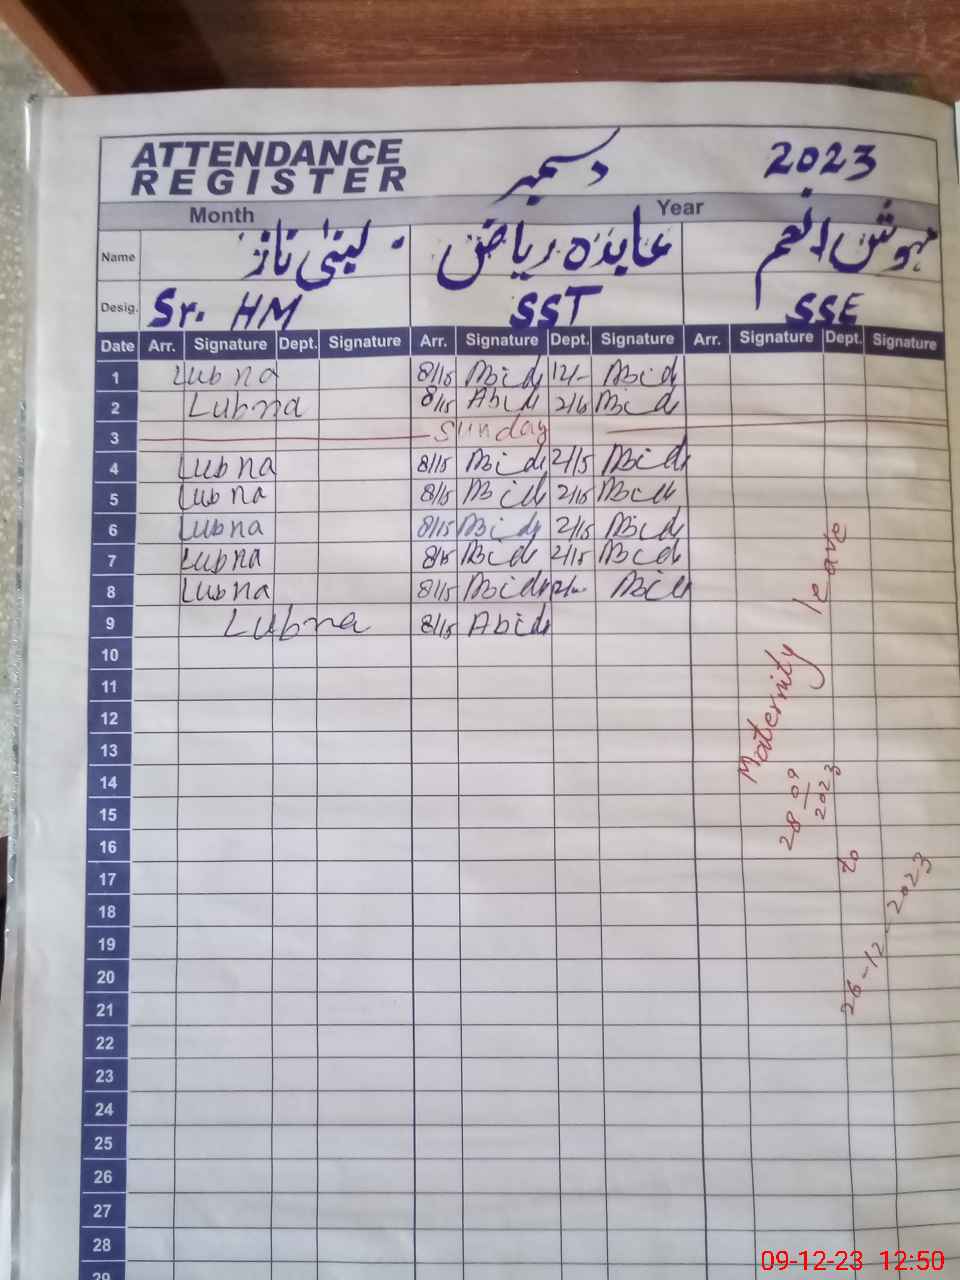 ATTENDANCE
REGISTER
دسمبر 2023
Month Year
Name لبنیٰ ناز عابدہ ریاض مہوش انعم
Desig. Sr. HM SST SSE
Date Arr. Signature Dept. Signature Arr. Signature Dept. Signature Arr. Signature Dept. Signature
1 Lubna 8/15 Abid 12/- Abid
2 Lubna 8/15 Abid 2/15 Abid
3 Sunday
4 Lubna 8/15 Abid 2/15 Abid
5 Lubna 8/15 Abid 2/15 Abid
6 Lubna 8/15 Abid 2/15 Abid
7 Lubna 8/15 Abid 2/15 Abid
8 Lubna 8/15 Abid Abid
9 Lubna 8/15 Abid
10
11
12
13
14
15
16
17
18
19
20
21
22
23
24
25
26
27
28
29
Maternity leave
28 09
2023
to
26-12-2023
09-12-23 12:50